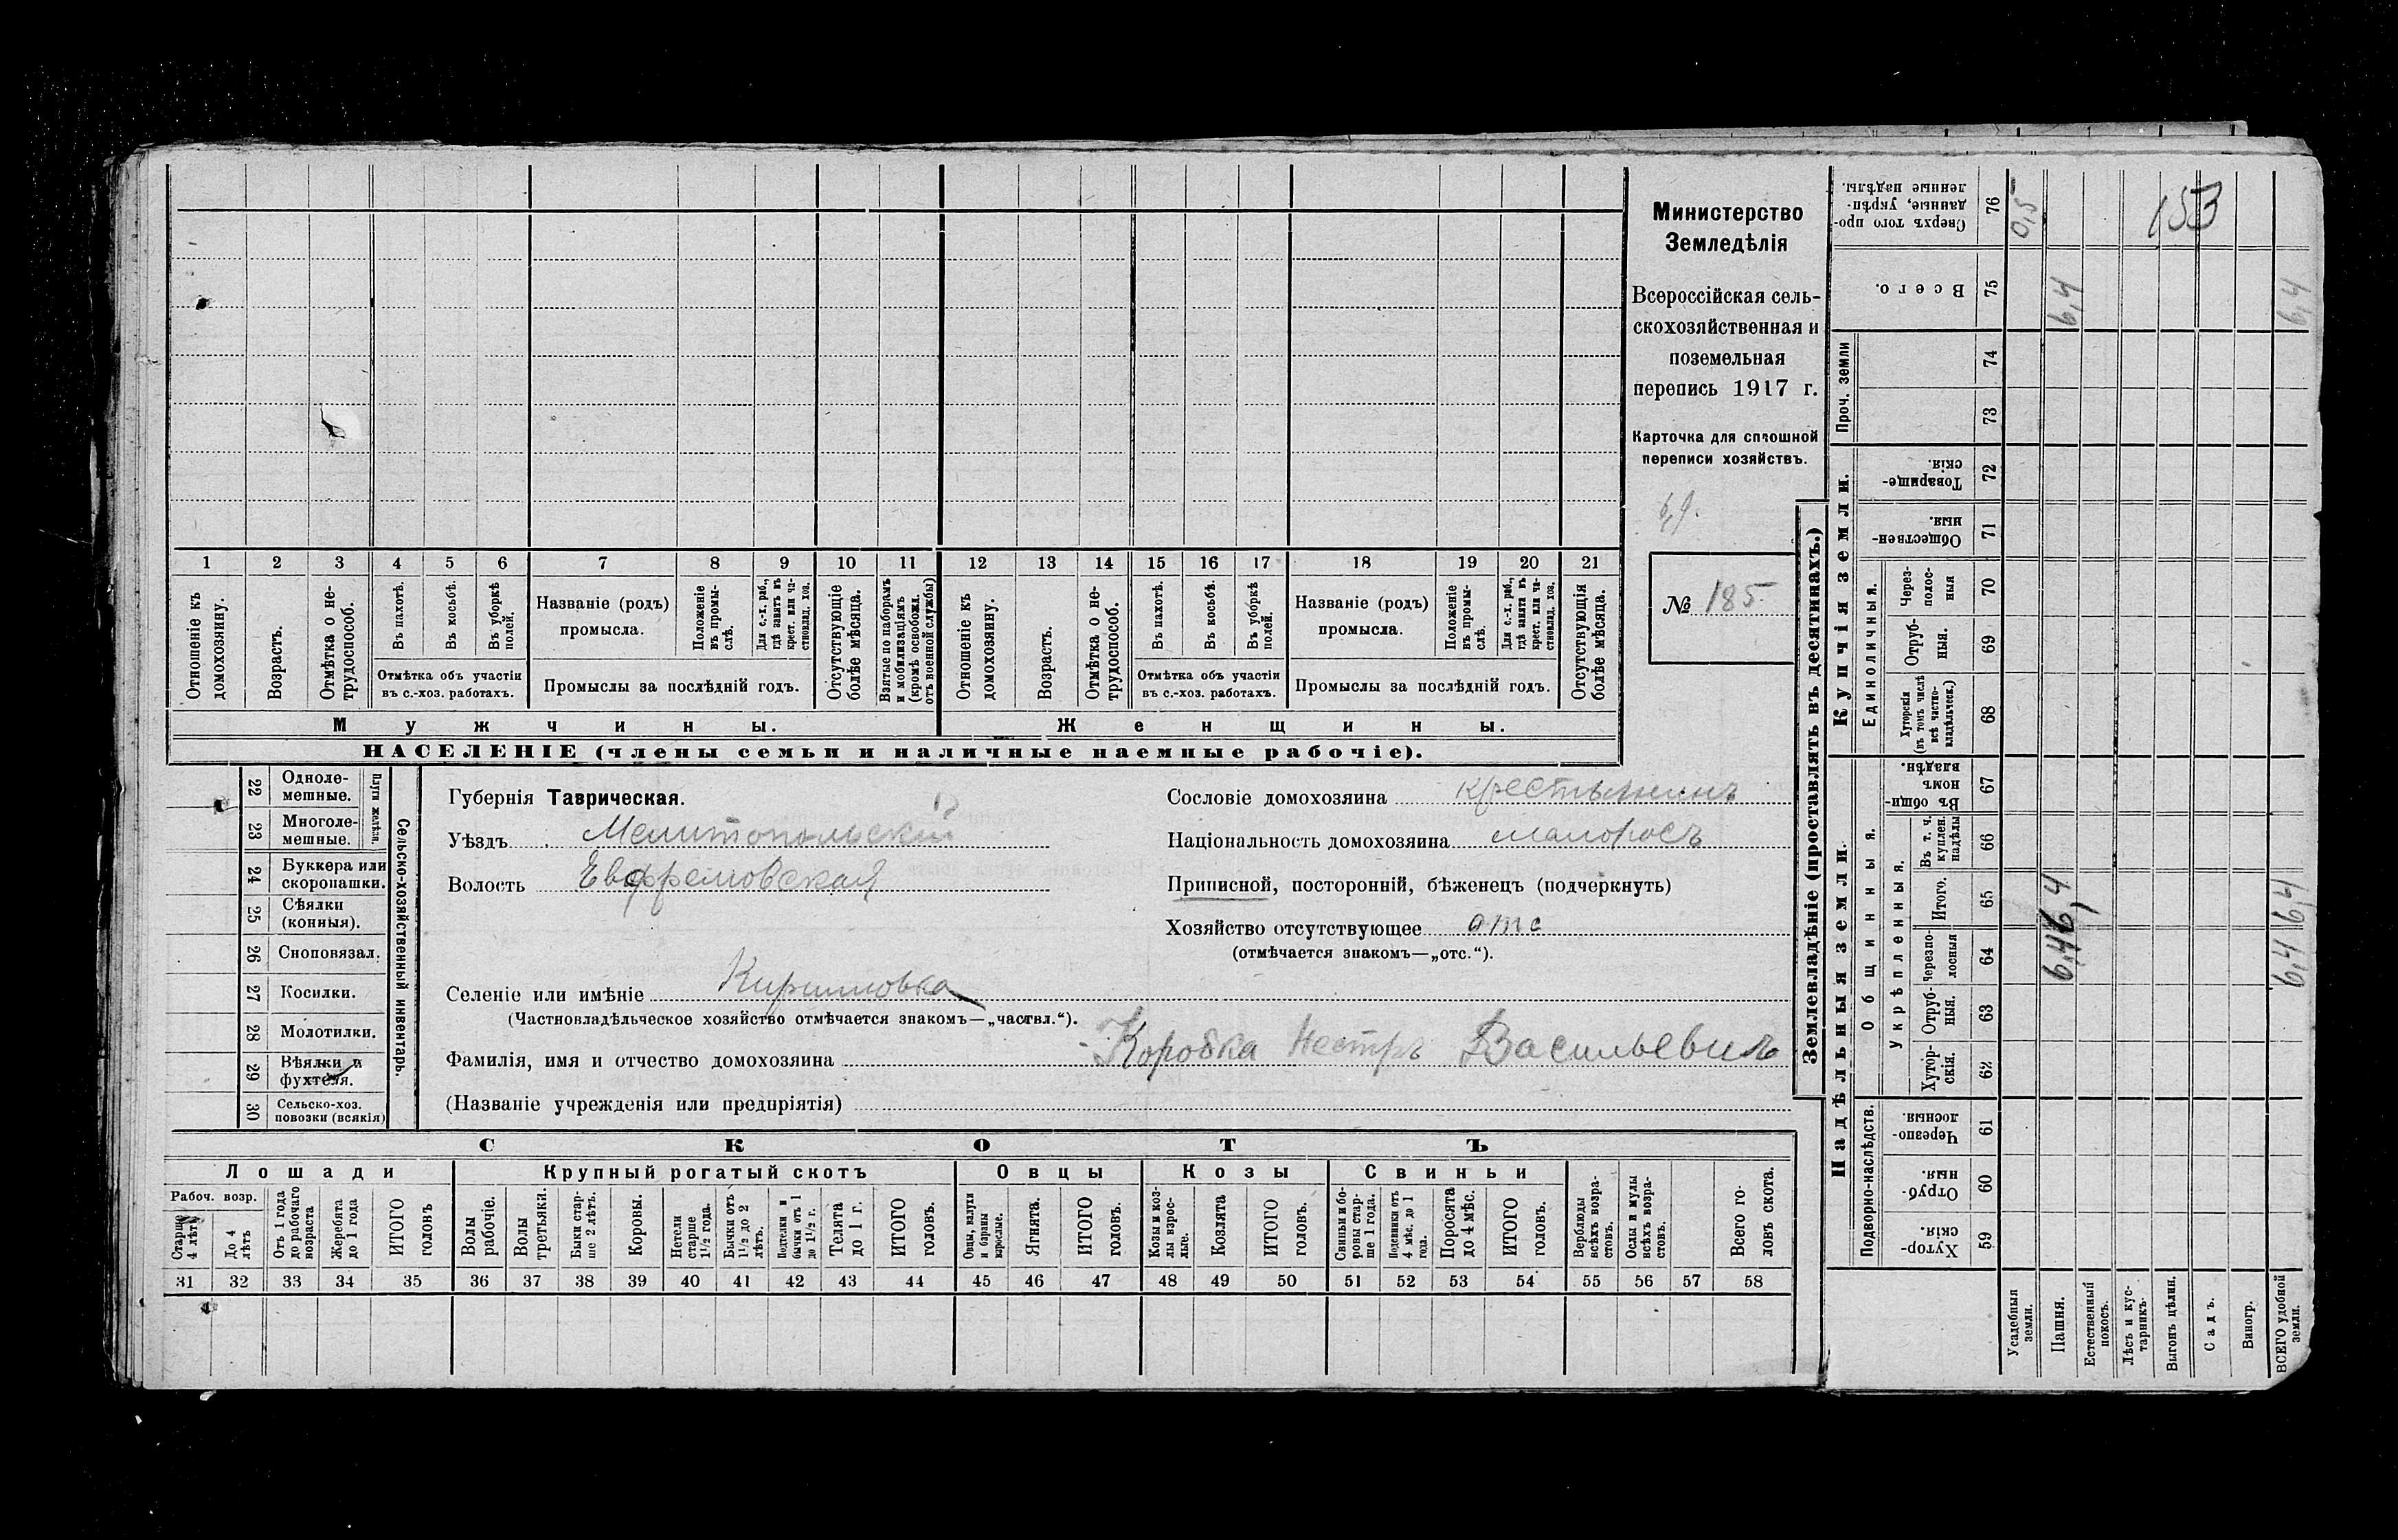 Министерство
Земледѣлія
Всероссійская сель-
скохозяйственная и
поземельная
перепись 1917 г.
Карточка для сплошной
переписи хозяйствъ.
№ 185
1 2 3 4 5 6 7 8 9 10 11 12 13 14 15 16 17 18 19 20 21
Отношеніе къ домохозяину.
Возрастъ.
Отмѣтка о не-трудоспособ.
Въ пахотѣ.
Въ косьбѣ.
Въ уборкѣ полей.
Отмѣтка объ участіи
въ с.-хоз. работахъ.
Названіе (родъ)
промысла.
Положеніе въ промы-слѣ.
Для с.-х. раб., гдѣ занятъ въ крест. или ча-стновлад. хоз.
Промыслы за послѣдній годъ.
Отсутствующіе болѣе мѣсяца.
Взятые по наборамъ и мобилизаціямъ (кромѣ освобожд. отъ военной службы)
Отношеніе къ домохозяину.
Возрастъ.
Отмѣтка о не-трудоспособ.
Въ пахотѣ.
Въ косьбѣ.
Въ уборкѣ полей.
Отмѣтка объ участіи
въ с.-хоз. работахъ.
Названіе (родъ)
промысла.
Положеніе въ промы-слѣ.
Для с.-х. раб., гдѣ занята въ крест. или ча-стновлад. хоз.
Промыслы за послѣдній годъ.
Отсутствующія болѣе мѣсяца.
Мужчины. Женщины.
НАСЕЛЕНІЕ (члены семьи и наличные наемные рабочіе).
22 Одноле-мешные.
23 Многоле-мешные.
Плуги желѣзн.
24 Буккера или скоропашки.
25 Сѣялки (конныя).
26 Сноповязал.
27 Косилки.
28 Молотилки.
29 Вѣялки и фухтеля.
30 Сельско-хоз. повозки (всякія)
Сельско-хозяйственный инвентарь.
Губернія Таврическая.
Уѣздъ Мелитопольскій
Волость Ефремовская
Селеніе или имѣніе Кирилловка
(Частновладѣльческое хозяйство отмѣчается знакомъ—„частвл.“).
Фамилія, имя и отчество домохозяина Коробка Нестръ Васильевичъ
(Названіе учрежденія или предпріятія)
Сословіе домохозяина крестьянинъ
Національность домохозяина малоросъ
Приписной, посторонній, бѣженецъ (подчеркнуть)
Хозяйство отсутствующее отс
(отмѣчается знакомъ—„отс.“).
СКОТЪ
Лошади Крупный рогатый скотъ Овцы Козы Свиньи
Рабоч. возр.
Старше 4 лѣтъ
До 4 лѣтъ
Отъ 1 года до рабочаго возраста
Жеребята до 1 года
ИТОГО головъ
Волы рабочіе.
Волы третьяки.
Быки стар-ше 2 лѣтъ.
Коровы.
Нетели старше 1½ года.
Бычки отъ 1½ до 2 лѣтъ.
Подтелки и бычки отъ 1 до 1½ г.
Телята до 1 г.
ИТОГО головъ.
Овцы, валухи и бараны взрослые.
Ягнята.
ИТОГО головъ.
Козы и коз-лы взрос-лые.
Козлята
ИТОГО головъ.
Свиньи и бо-ровы стар-ше 1 года.
Подсвинки отъ 4 мѣс. до 1 года.
Поросята до 4 мѣс.
ИТОГО головъ.
Верблюды всѣхъ возра-стовъ.
Ослы и мулы всѣхъ возра-стовъ.
Всего го-ловъ скота.
31 32 33 34 35 36 37 38 39 40 41 42 43 44 45 46 47 48 49 50 51 52 53 54 55 56 57 58
Землевладѣніе (проставлять въ десятинахъ.)
Сверхъ того про-данные, укрѣп-ленные надѣлы. 76 0,5 153
Всего. 75 6,4 6,4
Проч. земли 74
73
Купчія земли.
Товарище-скія. 72
Обществен-ныя. 71
Единоличныя.
Через-полос-ныя 70
Отруб-ныя. 69
Хуторскія (въ томъ числѣ всѣ частно-владѣльческ.) 68
Надѣльныя земли.
Общинныя.
Въ общи-номъ владѣн. 67
Укрѣпленныя.
Въ т. ч. куплен. надѣлы 66
Итого. 65 6,4 6,4
Черезпо-лосныя 64 6,4 6,4
Отруб-ныя. 63
Хутор-скія. 62
Подворно-наслѣдств.
Черезпо-лосныя. 61
Отруб-ныя. 60
Хутор-скія. 59
Усадебныя земли.
Пашня.
Естественный покосъ.
Лѣсъ и кус-тарникъ.
Выгонъ цѣлин.
Садъ.
Виногр.
ВСЕГО удобной земли.